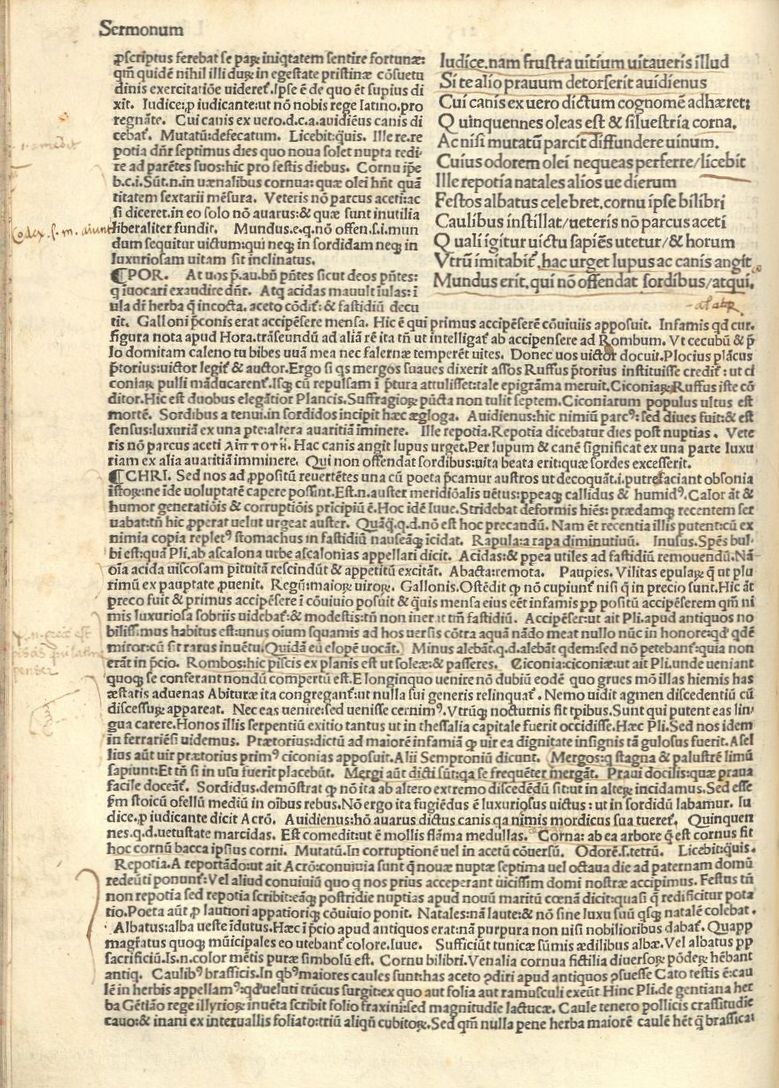 Sermonum
Iudice. nam frustra uitium uitaueris illud
Si te alio prauum detorserit auidienus
Cui canis ex uero dictum cognomē adhæret:
Quinquennes oleas est & siluestria corna.
Ac nisi mutatū parcit diffundere uinum.
Cuius odorem olei nequeas perferre/licebit
Ille repotia natales alios ue dierum
Festos albatus celebret. cornu ipse bilibri
Caulibus instillat/ueteris nō parcus aceti
Quali igitur uictu sapiēs utetur/& horum
Vtrū imitabit. hac urget lupus ac canis angit
Mundus erit. qui nō offendat sordibus/atqui.
ꝓscriptus ferebat se iniqtatem sentire fortunæ:
qm̄ quidē nihil illi in egestate pristinæ cōsuetu
dinis exercitatiōe Ipse ē de quo ēt supius di
xit. Iudice: ꝓ iudicante: ut nō nobis rege latino. pro
regnāte. Cui canis ex uero. d. c. a. auidiēus canis di
cebat. Mutatū: defecatum. Licebit: quis. Ille re. re
potia dn̄r septimus dies quo noua solet nupta redi
re ad parētes suos: hic pro festis diebus. Cornu ipe
b. c. i. Sūt. n. in uænalibus cornua: quæ olei hn̄t quā
titatem sextarii mēsura. Veteris nō parcus aceti: ac
si diceret. in eo solo nō auarus: & quæ sunt inutilia
liberaliter fundit. Mundus. e. q. nō offen. s. i. mun
dum sequitur uictum: qui neqȝ in sordidam neqȝ in
luxuriosam uitam sit inclinatus.
¶POR. At uos p̄. au. bn̄ p̄ntes sicut deos p̄ntes:
q iuocari exaudire dn̄t. Atq acidas mauult iulas: i
ula dī herba q īncocta. aceto cōdit: & fastidiū decu
tit. Galloni p̄conis erat accipēsere mensa. Hic ē qui primus accipēserē cōuiuiis apposuit. Infamis qd cur.
figura nota apud Hora. trāseundū ad aliā rē ita tn̄ ut intelligat ab accipensere ad Rombum. Vt cecubū & p̄
lo domitam caleno tu bibes uuā mea nec falernæ temperēt uites. Donec uos uictor docuit. Plocius plācus
p̄torius: uictor legit & auctor. Ergo si qs mergos suaues dixerit assos Ruffus p̄torius instituisse credit: ut ci
coniaꝝ pulli māducarent. Isqȝ cū repulsam i p̄tura attulisset: tale epigrāma meruit. Ciconiaꝝ Ruffus iste cō
ditor. Hic est duobus elegātior Plancis. Suffragioꝝ pūcta non tulit septem. Ciconiarum populus ultus est
mortē. Sordibus a tenui. in sordidos incipit hæc ægloga. Auidienus: hic nimiū parcꝰ: sed diues fuit: & est
sensus: luxuriā ex una pte: altera auaritiā īminere. Ille repotia. Repotia dicebatur dies post nuptias. Vete
ris nō parcus aceti Hac canis angit lupus urget. Per lupum & canē significat ex una parte luxu
riam ex alia auaritiā imminere. Qui non offendat sordibus: uita beata erit: quæ sordes excesserit.
¶CHRI. Sed nos ad ꝓpositū reuertētes una cū poeta p̄camur austros ut decoquāt. i. putrefaciant obsonia
istoꝝ: ne īde uoluptatē capere possint. Est. n. auster meridiōalis uētus: ppeaqȝ callidus & humidꝰ. Calor āt &
humor generatiōis & corruptiōis pricipiū ē. Hoc idē Iuue. Stridebat deformis hiēs: prædamqȝ recentem ser
uabat: tn̄ hic ꝓperat uelut urgeat auster. Quāq. q. d. nō est hoc precandū. Nam ēt recentia illis putent: cū ex
nimia copia repletꝰ stomachus in fastidiū nauseāqȝ icidat. Rapula: a rapa diminutiuū. Inulas. Spēs bul-
bi est: quā Pli. ab ascalona urbe ascalonias appellari dicit. Acidas: & ppea utiles ad fastidiū remouendū. Nā
oīa acida uiscosam pituitā rescindūt & appetitū excitāt. Abacta: remota. Paupies. Vilitas epulaꝝ q̄ ut plu
rimū ex pauptate ꝓuenit. Regū: maioꝝ uiroꝝ. Gallonis. Ostēdit qp nō cupiunt nisi q in precio sunt. Hic āt
preco fuit & primus accipēsere i cōuiuio posuit & quis mensa eius eēt infamis pp positū accipēserem qm̄ ni
mis luxuriosa sobriis uidebat: & modestis: tn̄ non iner it tm̄ fastidiū. Accipēser: ut ait Pli. apud antiquos no
biliss. mus habitus est: unus oīum squamis ad hos uersis cōtra aquā nādo meat nullo nūc in honore: qd qdē
miror: cū sit rarus inuētu. Quidā eū elopē uocāt. Minus alebāt. q. d. alebāt qdem: sed nō petebant: quia non
erāt in p̄cio. Rombos: hic piscis ex planis est ut soleæ: & passeres. Ciconia: ciconiæ: ut ait Pli. unde ueniant
quoqȝ se conferant nondū compertū est. E longinquo uenire nō dubiū eodē quo grues mō illas hiemis has
æstatis aduenas Abituræ ita congregant: ut nulla sui generis relinquat. Nemo uidit agmen discedentiū cū
discessuꝝ appareat. Nec eas uenire: sed uenisse cernimꝰ. Vtrūqȝ nocturnis fit tpibus. Sunt qui putent eas lin-
gua carere. Honos illis serpentiū exitio tantus ut in thessalia capitale fuerit occidisse. Hæc Pli. Sed nos idem
in ferrariēsi uidemus. Prætorius: dictū ad maiorē infamiā qp uir ea dignitate insignis tā gulosus fuerit. Asel
lius aūt uir prætorius primꝰ ciconias apposuit. Alii Semproniū dicunt. Mergos: q stagna & palustrē limū
sapiunt: Et tn̄ si in usu fuerit placebūt. Mergi aūt dicti sūt: qa se frequēter mergāt. Praui docilis: quæ praua
facile doceat. Sordidus. demōstrat qp nō ita ab altero extremo discedēdū sit: ut in alteꝝ incidamus. Sed esse
ꝼm stoicū ofellū mediū in oībus rebus. Nō ergo ita fugiēdus ē luxuriosus uictus: ut in sordidū labamur. Iu
dice. ꝓ iudicante dicit Acrō. Auidienus: hō auarus dictus canis. qa nimis mordicus sua tueret. Quinquen
nes. q. d. uetustate marcidas. Est comedit: ut ē mollis flāma medullas. Corna: ab ea arbore q̄ est cornus fit
hoc cornū bacca ipsius corni. Mutatū. In corruptionē uel in acetū cōuersū. Odorē. s. tetrū. Licebit: quis.
Repotia. A reportādo: ut ait Acrō: conuiuia sunt q nouæ nuptæ septima uel octaua die ad paternam domū
redeūti ponunt: Vel aliud conuiuiū quo q nos prius acceperant uicissim domi nostræ accipimus. Festus tn̄
non repotia sed repotia scribit: eāqȝ postridie nuptias apud nouū maritū cœnā dicit: quasi q̄ redificitur pota
tio. Poeta aūt ꝓ lautiori appatioriqȝ cōuiuio ponit. Natales: nā laute: & nō sine luxu suū qsqȝ natalē colebat.
Albatus: alba ueste īdutus. Hæc i p̄cio apud antiquos erat: nā purpura non nisi nobilioribus dabat. Quapp
magratus quoqȝ mūicipales eo utebant colore. Iuue. Sufficiūt tunicæ sūmis ædilibus albæ. Vel albatus pp
sacrificiū. Is. n. color mētis puræ simbolū est. Cornu bilibri. Venalia cornua fictilia diuersoꝝ pōdeꝝ hēbant
antiq. Caulibꝰ brassicis. In qbꝰ maiores caules sunt: has aceto ꝓdiri apud antiquos ꝓsuesse Cato testis ē: cau
lē in herbis appellamꝰ: qd ueluti trūcus surgit: ex quo aut folia aut ramusculi exeūt Hinc Pli. de gentiana her
ba Gētiāo rege illyrioꝝ inuēta scribit folio fraxini: sed magnitudīe lactucæ. Caule tenero pollicis crassitudīe
cauo: & inani ex interuallis foliato: triū aliqn̄ cubitoꝝ. Sed qm̄ nulla pene herba maiorē caulē hēt q̄ brassica: